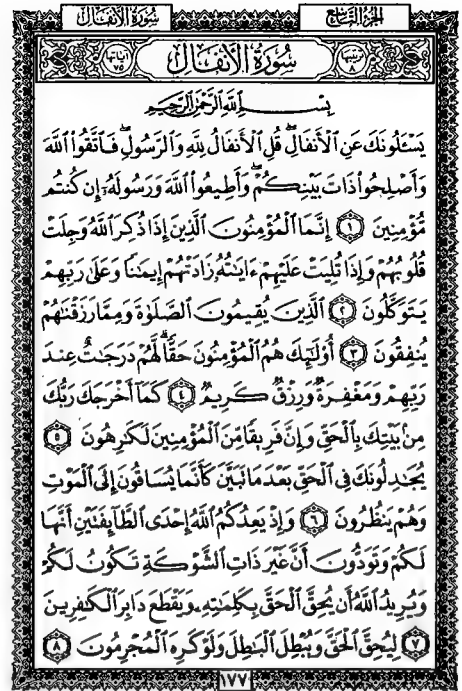 سُورَةُ الأَنفَال
الجُزءُ التَّاسِع
سُورَةُ الأَنفَالِ
ترتيبها ٨
آياتها ٧٥
بِسْمِ ٱللَّهِ ٱلرَّحْمَٰنِ ٱلرَّحِيمِ
يَسْـَٔلُونَكَ عَنِ ٱلْأَنفَالِۖ قُلِ ٱلْأَنفَالُ لِلَّهِ وَٱلرَّسُولِۖ فَٱتَّقُوا۟ ٱللَّهَ
وَأَصْلِحُوا۟ ذَاتَ بَيْنِكُمْۖ وَأَطِيعُوا۟ ٱللَّهَ وَرَسُولَهُۥٓ إِن كُنتُم
مُّؤْمِنِينَ ١ إِنَّمَا ٱلْمُؤْمِنُونَ ٱلَّذِينَ إِذَا ذُكِرَ ٱللَّهُ وَجِلَتْ
قُلُوبُهُمْ وَإِذَا تُلِيَتْ عَلَيْهِمْ ءَايَٰتُهُۥ زَادَتْهُمْ إِيمَٰنًا وَعَلَىٰ رَبِّهِمْ
يَتَوَكَّلُونَ ٢ ٱلَّذِينَ يُقِيمُونَ ٱلصَّلَوٰةَ وَمِمَّا رَزَقْنَٰهُمْ
يُنفِقُونَ ٣ أُو۟لَٰٓئِكَ هُمُ ٱلْمُؤْمِنُونَ حَقًّاۚ لَّهُمْ دَرَجَٰتٌ عِندَ
رَبِّهِمْ وَمَغْفِرَةٌ وَرِزْقٌ كَرِيمٌ ٤ كَمَآ أَخْرَجَكَ رَبُّكَ
مِنۢ بَيْتِكَ بِٱلْحَقِّ وَإِنَّ فَرِيقًا مِّنَ ٱلْمُؤْمِنِينَ لَكَٰرِهُونَ ٥
يُجَٰدِلُونَكَ فِى ٱلْحَقِّ بَعْدَ مَا تَبَيَّنَ كَأَنَّمَا يُسَاقُونَ إِلَى ٱلْمَوْتِ
وَهُمْ يَنظُرُونَ ٦ وَإِذْ يَعِدُكُمُ ٱللَّهُ إِحْدَى ٱلطَّآئِفَتَيْنِ أَنَّهَا
لَكُمْ وَتَوَدُّونَ أَنَّ غَيْرَ ذَاتِ ٱلشَّوْكَةِ تَكُونُ لَكُمْ
وَيُرِيدُ ٱللَّهُ أَن يُحِقَّ ٱلْحَقَّ بِكَلِمَٰتِهِۦ وَيَقْطَعَ دَابِرَ ٱلْكَٰفِرِينَ
٧ لِيُحِقَّ ٱلْحَقَّ وَيُبْطِلَ ٱلْبَٰطِلَ وَلَوْ كَرِهَ ٱلْمُجْرِمُونَ ٨
١٧٧